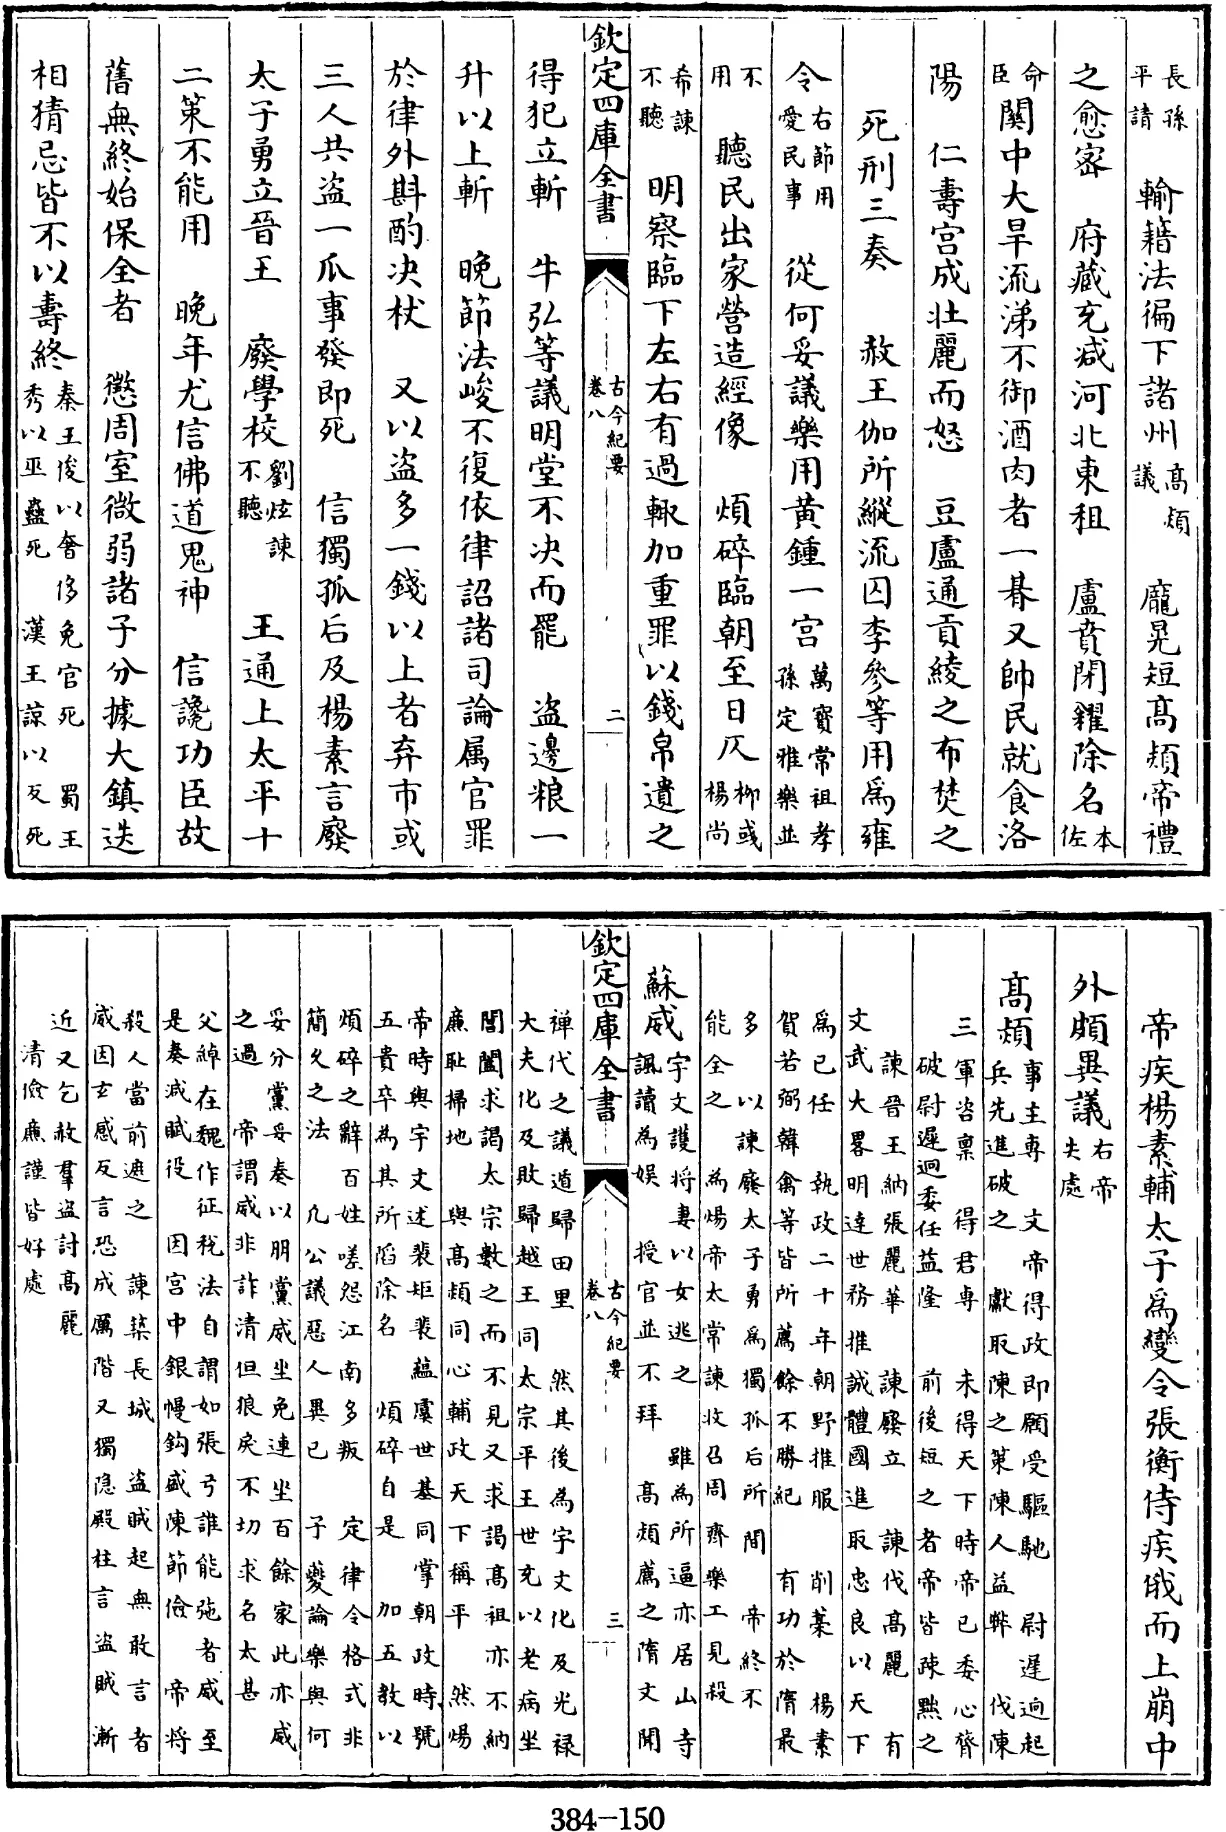 長孫平請 輸籍法徧下諸州 高熲議 龐晃短高熲帝禮
之愈密 府藏充减河北東租 盧賁閉糴除名 本佐
命臣 關中大旱流涕不御酒肉者一朞又帥民就食洛
陽 仁壽宫成壯麗而怒 豆盧通貢綾之布焚之
死刑三奏 赦王伽所縱流囚李參等用爲雍
令 右節用愛民事 從何妥議樂用黄鍾一宫 萬寳常祖孝孫定雅樂並
不用 聽民出家營造經像 煩碎臨朝至日仄 柳彧楊尚
希諫不聽 明察臨下左右有過輙加重罪以錢帛遺之
欽定四庫全書 古今紀要 卷八 二
得犯立斬 牛弘等議明堂不决而罷 盗邊粮一
升以上斬 晩節法峻不復依律詔諸司論属官罪
於律外斟酌决杖 又以盗多一錢以上者弃市或
三人共盗一瓜事發即死 信獨孤后及楊素言廢
太子勇立晉王 廢學校 劉炫諫不聽 王通上太平十
二策不能用 晩年尤信佛道鬼神 信讒功臣故
舊無終始保全者 懲周室微弱諸子分據大鎮迭
相猜忌皆不以壽終 秦王俊以奢侈免官死 蜀王秀以巫蠱死 漢王諒以反死
帝疾楊素輔太子爲變令張衡侍疾俄而上崩中
外頗異議 右帝失處
高熲 事主專 文帝得政即願受驅馳 尉遲迥起
兵先進破之 獻取陳之策陳人益弊 伐陳
三軍咨禀 得君專 未得天下時帝已委心膂
破尉遲迥委任益隆 前後短之者帝皆疎黜之
諫晉王納張麗華 諫廢立 諫伐高麗 有
文武大畧明達世務推誠體國進取忠良以天下
爲已任 執政二十年朝野推服 削藁 楊素
賀若弼韓禽等皆所薦餘不勝紀 有功於隋最
多 以諫廢太子勇爲獨孤后所間 帝終不
能全之 為煬帝太常諫收召周齊樂工見殺
蘇威 宇文護將妻以女逃之 雖爲所逼亦居山寺
諷讀為娱 授官並不拜 高熲薦之隋文聞
欽定四庫全書 古今紀要 卷八 三
禪代之議遁歸田里 然其後為宇文化及光禄
大夫化及敗歸越王同太宗平王世充以老病坐
閶闔求謁太宗數之而不見又求謁高祖亦不納
廉耻掃地 與高熲同心輔政天下稱平 然煬
帝時與宇文述裴矩裴藴虞世基同掌朝政時號
五貴卒為其所陷除名 煩碎自是 加五教以
煩碎之辭百姓嗟怨江南多叛 定律令格式非
簡久之法 凡公議惡人異已 子夔論樂與何
妥分黨妥奏以朋黨威坐免連坐百餘家此亦威
之過 帝謂威非詐清但狼戾不切求名太甚
父綽在魏作征税法自謂如張弓誰能弛者威至
是奏減賦役 因宫中銀幔鈎盛陳節儉 帝將
殺人當前遮之 諫築長城 盗賊起無敢言者
威因玄感反言恐成厲階又獨隐殿柱言盗賊漸
近又乞赦羣盗討高麗
清儉廉謹皆好處
384-150